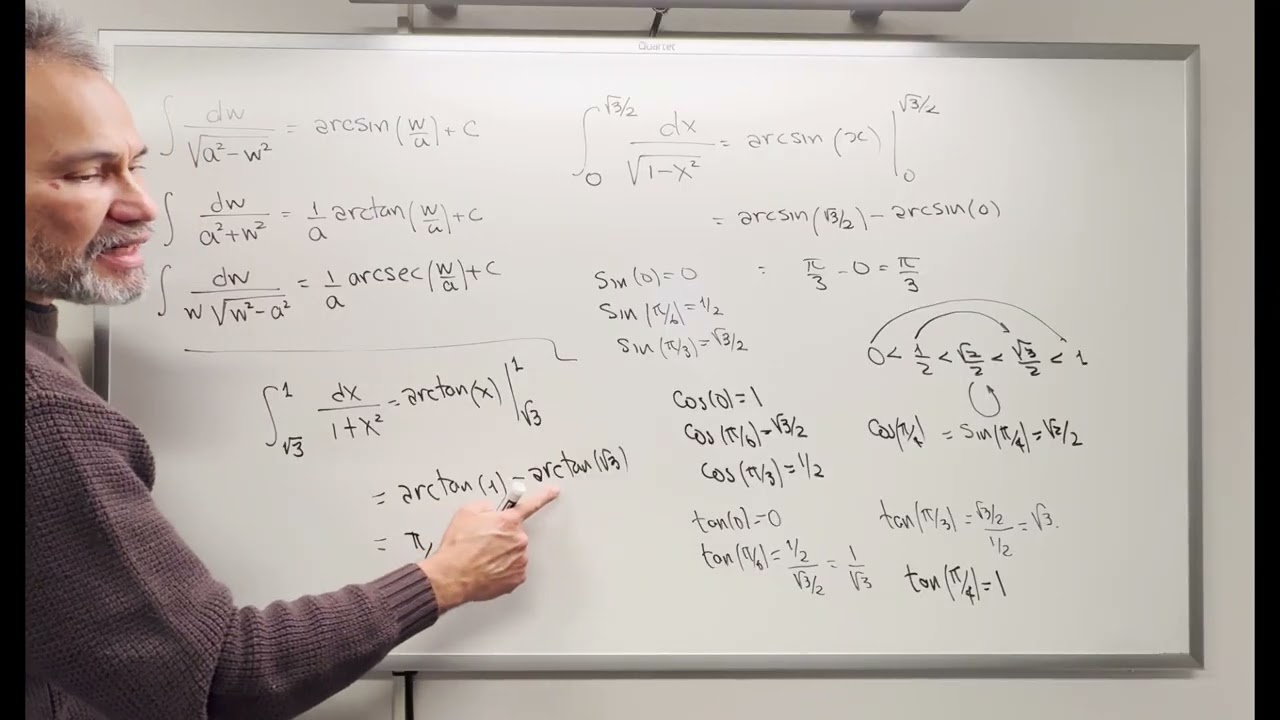 Quartet
∫ dw/√(a²−w²) = arcsin(w/a)+C
∫ dw/(a²+w²) = 1/a arctan(w/a)+C
∫ dw/(w√(w²−a²)) = 1/a arcsec(w/a)+C
∫₁ from √3 to 1 dx/(1+x²) = arctan(x) |_√3^1
= arctan(1) − arctan(√3)
= π/
∫_0^(√3/2) dx/√(1−x²) = arcsin(x) |_0^(√3/2)
= arcsin(√3/2) − arcsin(0)
= π/3 − 0 = π/3
sin(0)=0
sin(π/6)=1/2
sin(π/3)=√3/2
0 < 1/2 < √2/2 < √3/2 < 1
cos(0)=1
cos(π/6)=√3/2
cos(π/3)=1/2
cos(π/4) = sin(π/4)=√2/2
tan(0)=0
tan(π/6)=(1/2)/(√3/2)=1/√3
tan(π/3)=(√3/2)/(1/2)=√3.
tan(π/4)=1